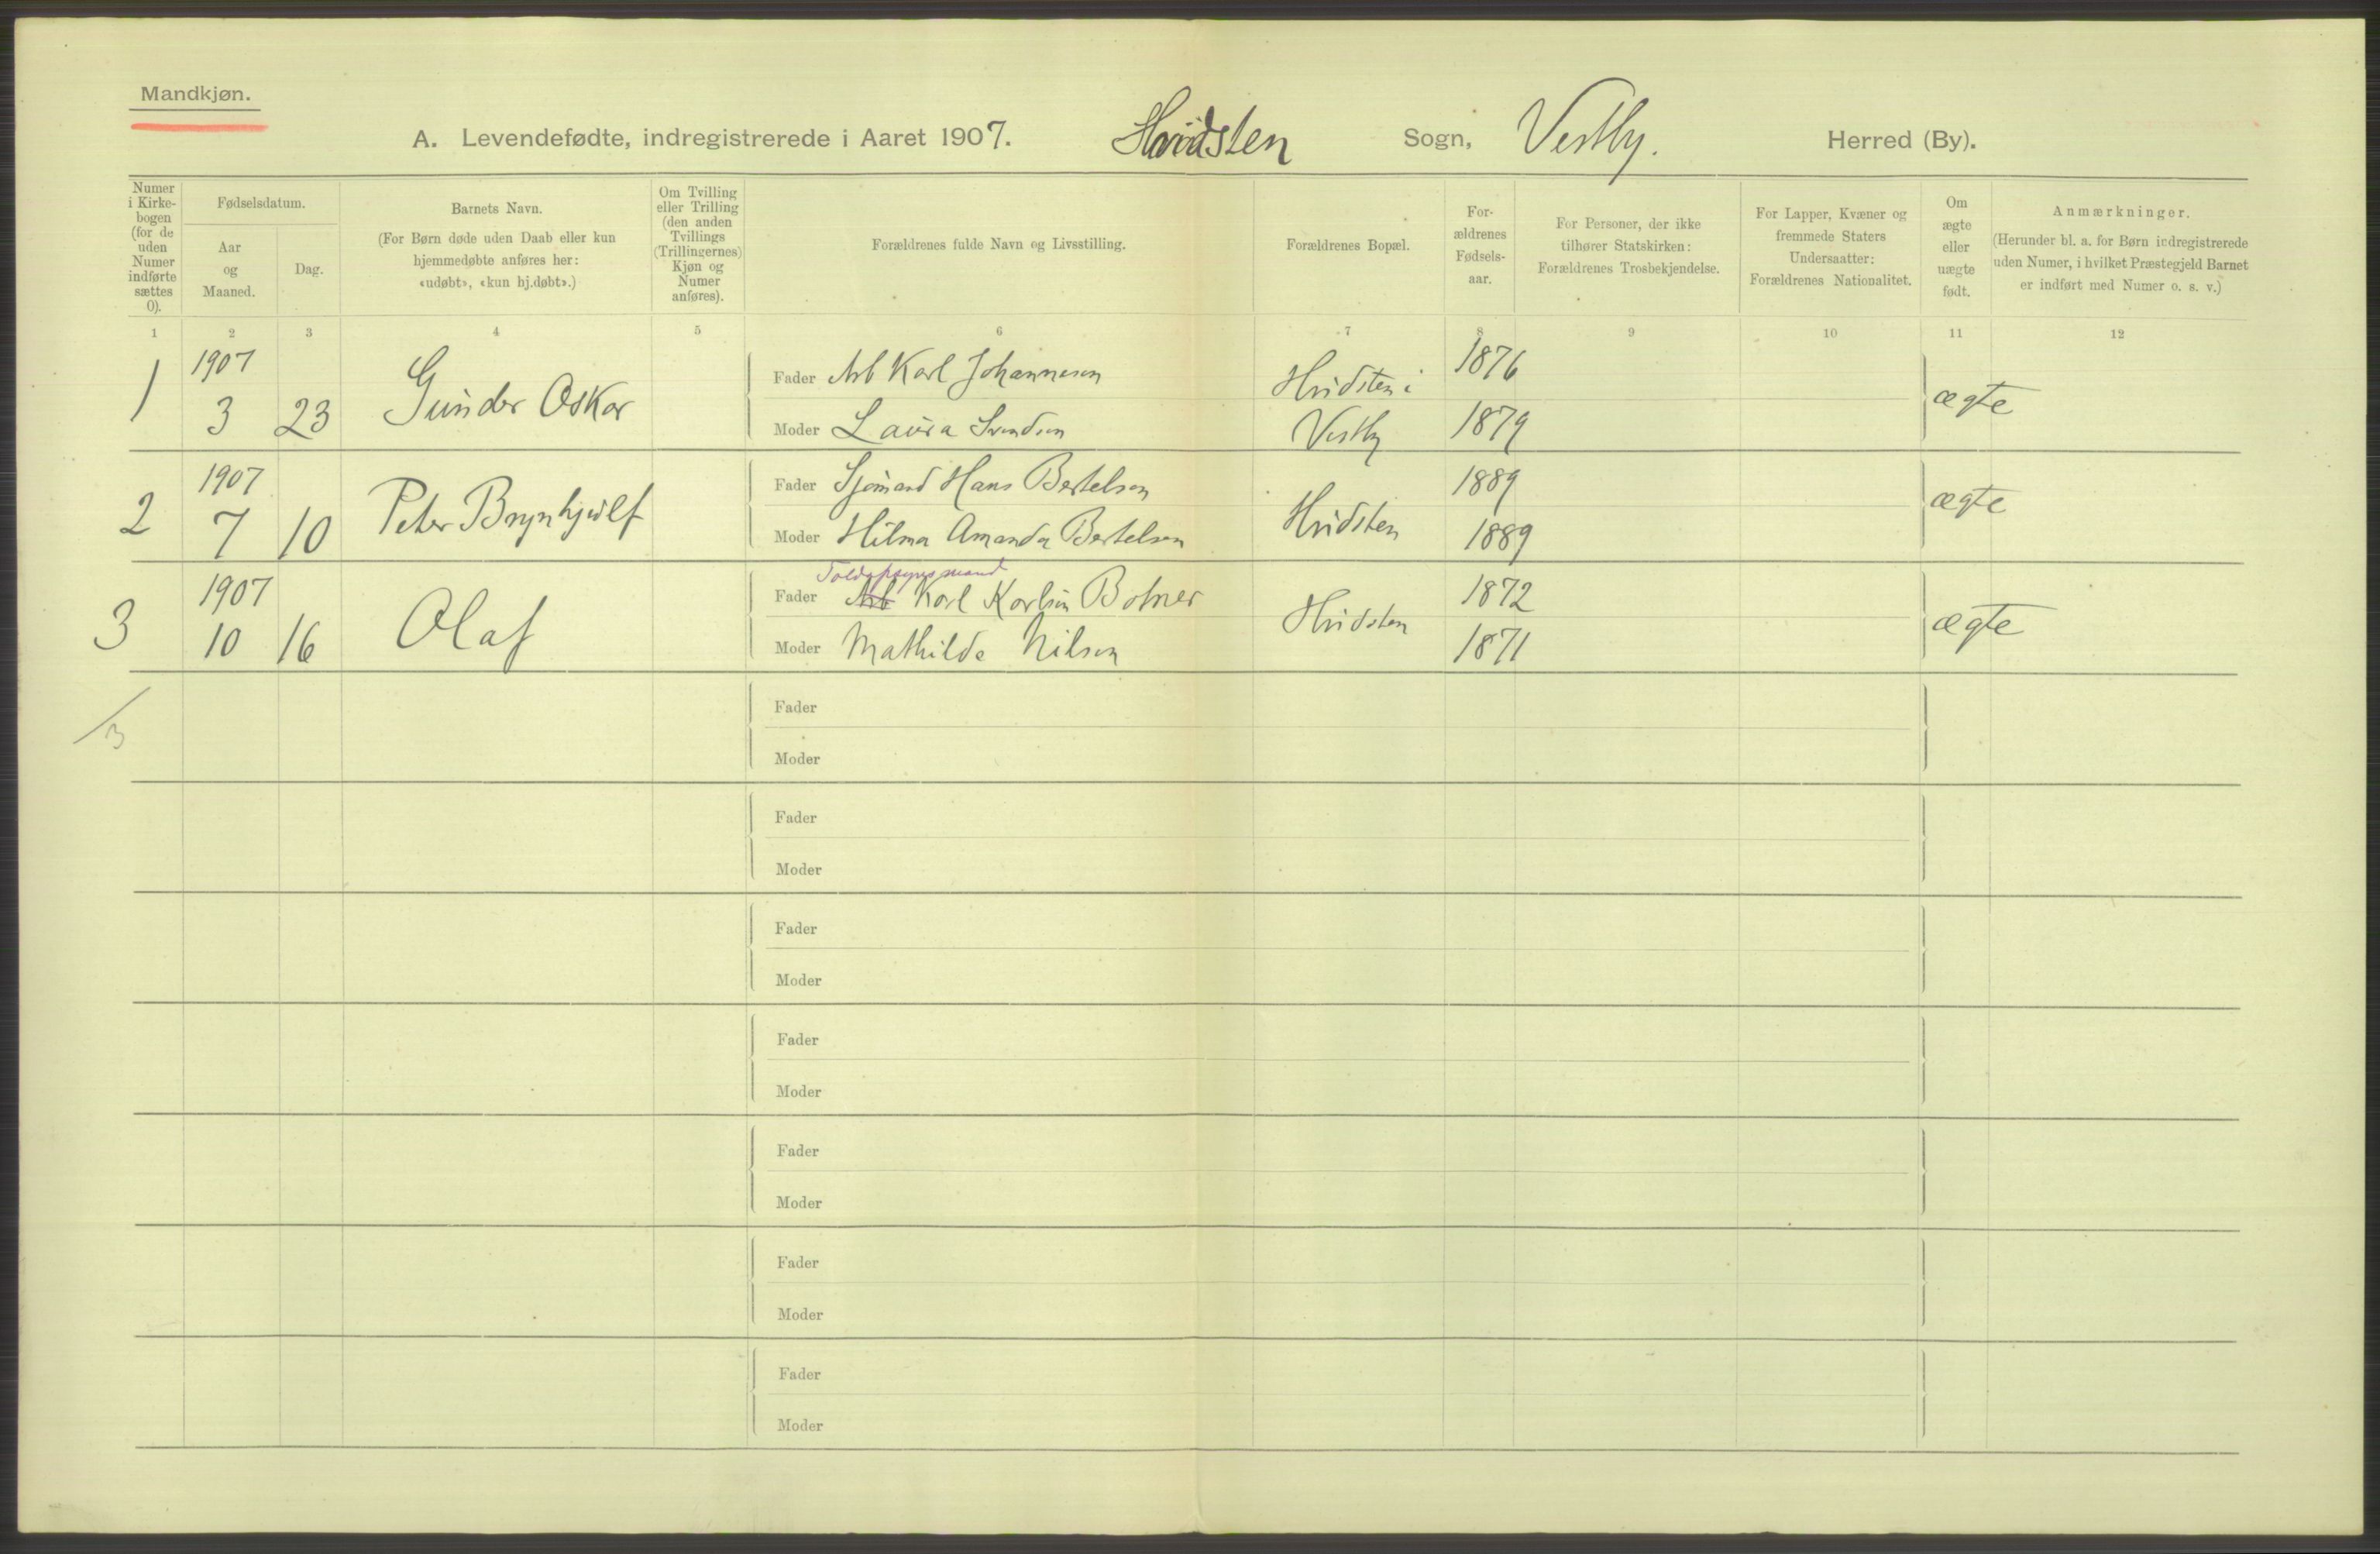 Mandkjøn.
A. Levendefødte, indregistrerede i Aaret 1907. Hvidsten Sogn, Vestby. Herred (By).
Numer i Kirke-bogen (for de uden Numer indførte sættes 0).
Fødselsdatum.
Aar og Maaned.
Dag.
Barnets Navn.
(For Børn døde uden Daab eller kun
hjemmedøbte anføres her:
«udøbt», «kun hj.døbt».)
Om Tvilling
eller Trilling
(den anden
Tvillings
(Trillingernes)
Kjøn og
Numer
anføres).
Forældrenes fulde Navn og Livsstilling.
Forældrenes Bopæl.
For-
ældrenes
Fødsels-
aar.
For Personer, der ikke
tilhører Statskirken:
Forældrenes Trosbekjendelse.
For Lapper, Kvæner og
fremmede Staters
Undersaatter:
Forældrenes Nationalitet.
Om
ægte
eller
uægte
født.
Anmærkninger.
(Herunder bl. a. for Børn indregistrerede
uden Numer, i hvilket Præstegjeld Barnet
er indført med Numer o. s. v.)
1 2 3 4 5 6 7 8 9 10 11 12
1 1907 3 23 Gunder Oskar
Fader Arb Karl Johannesen
Moder Laura Svendsen
Hvidsten i
Vestby
1876
1879
ægte
2 1907 7 10 Peter Brynhjulf
Fader Sjømand Hans Bertelsen
Moder Hilma Amanda Bertelsen
Hvidsten
1889
1889
ægte
3 1907 10 16 Olaf
Toldopsynsmand
Fader Arb Karl Karlsen Botner
Moder Mathilde Nilsen
Hvidsten
1872
1871
ægte
/3
Fader
Moder
Fader
Moder
Fader
Moder
Fader
Moder
Fader
Moder
Fader
Moder
Fader
Moder